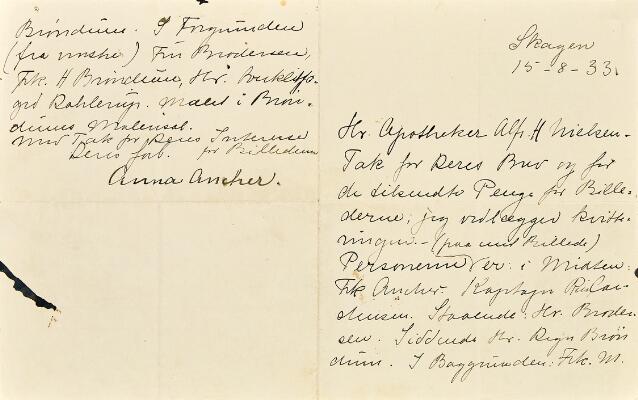 Skagen
15-8-33.
Hr. Apotheker Alf. H Nielsen-
Tak for Deres Brev og for
de tilsendte Penge for Bille-
derne, jeg vedlægger Kvitte-
ringen - (paa mit Billede)
Personerne er: i Midten:
Frk Ancher. Kaptajn
Staaende: Hr. Broder-
sen. Siddende Hr. Degn Brøn
dum. I Baggrunden: Frk. M.
Brøndum. I Forgrunden
(fra venstre) Fru Brodersen,
Frk. H Brøndum, Hr.
Rohlerup. Malet i Brøn-
dums Malerisal.
med Tak for Deres Interesse
for Billederne
Deres forb.
Anna Ancher.